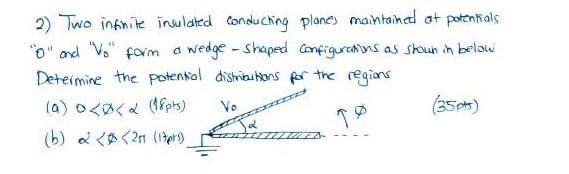 2) Two infinite insulated conducting planes maintained at potentials
"0" and "V₀" form a wedge - shaped configurations as shown in below
Determine the potential distributions for the regions
(a) 0<Ø<α (18pts) V₀ α ↑ Ø (35pts)
(b) α<Ø<2π (17pts)